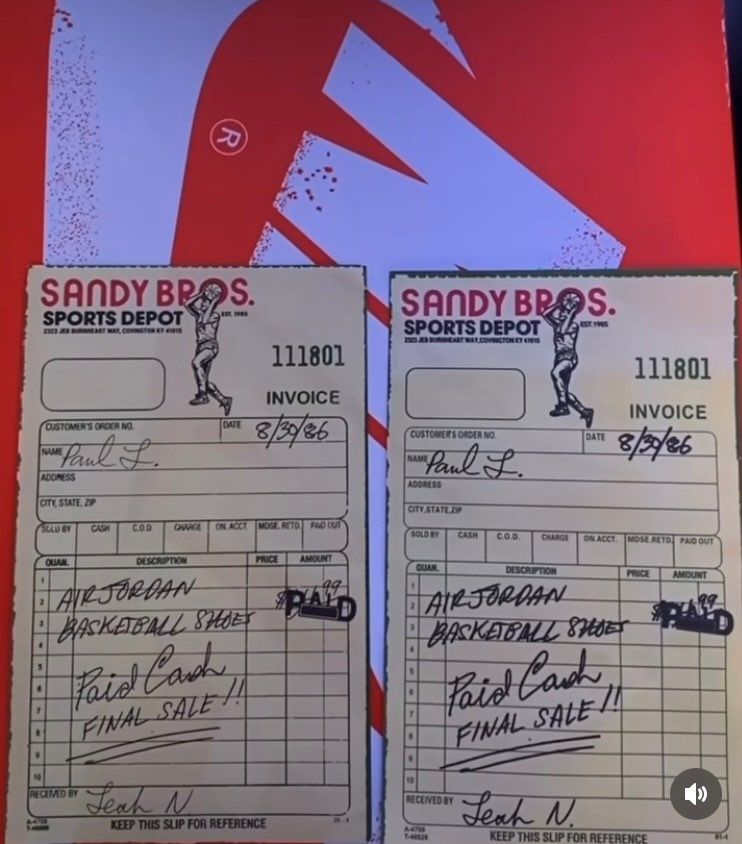 ®
SANDY BROS.
SPORTS DEPOT EST. 1985
2323 JEB BURNHEART WAY, COVINGTON KY 41015
111801
INVOICE
CUSTOMER'S ORDER NO. DATE 8/30/86
NAME Paul L.
ADDRESS
CITY, STATE, ZIP
SOLD BY CASH C.O.D. CHARGE ON. ACCT. MDSE. RETD. PAID OUT
QUAN. DESCRIPTION PRICE AMOUNT
1
2 AIR JORDAN 99
3 BASKETBALL SHOES PAID
4
5
6 Paid Cash
7 FINAL SALE!!
8
9
10
RECEIVED BY Leah N.
A-4705
KEEP THIS SLIP FOR REFERENCE
SANDY BROS.
SPORTS DEPOT EST. 1985
2323 JEB BURNHEART WAY, COVINGTON KY 41015
111801
INVOICE
CUSTOMER'S ORDER NO. DATE 8/30/86
NAME Paul L.
ADDRESS
CITY, STATE, ZIP
SOLD BY CASH C.O.D. CHARGE ON. ACCT. MDSE. RETD. PAID OUT
QUAN. DESCRIPTION PRICE AMOUNT
1
2 AIR JORDAN 99
3 BASKETBALL SHOES PAID
4
5
6 Paid Cash
7 FINAL SALE!!
8
9
10
RECEIVED BY Leah N.
A-4705
KEEP THIS SLIP FOR REFERENCE